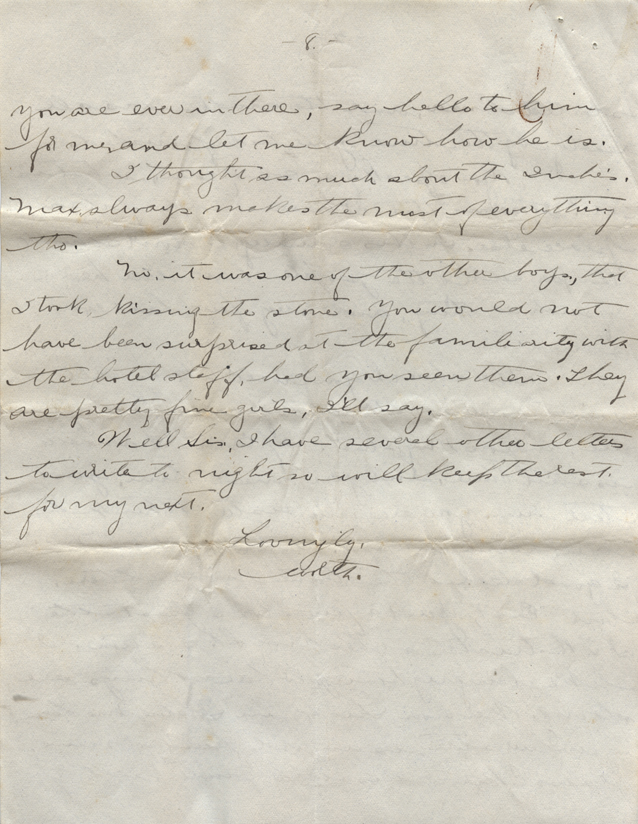 - 8. -
you are ever in there, say hello to him
for me, and let me know how he is.
I thought as much about the
Max, always makes the most of everything
tho.
No, it was one of the other boys, that
I took, kissing the stone. You would not
have been surprised at the familiarity with
the hotel staff, had you seen them. They
are pretty fine girls, I'll say.
Well Sis, I have several other letters
to write to night so will keep the rest.
for my next.
Lovingly.